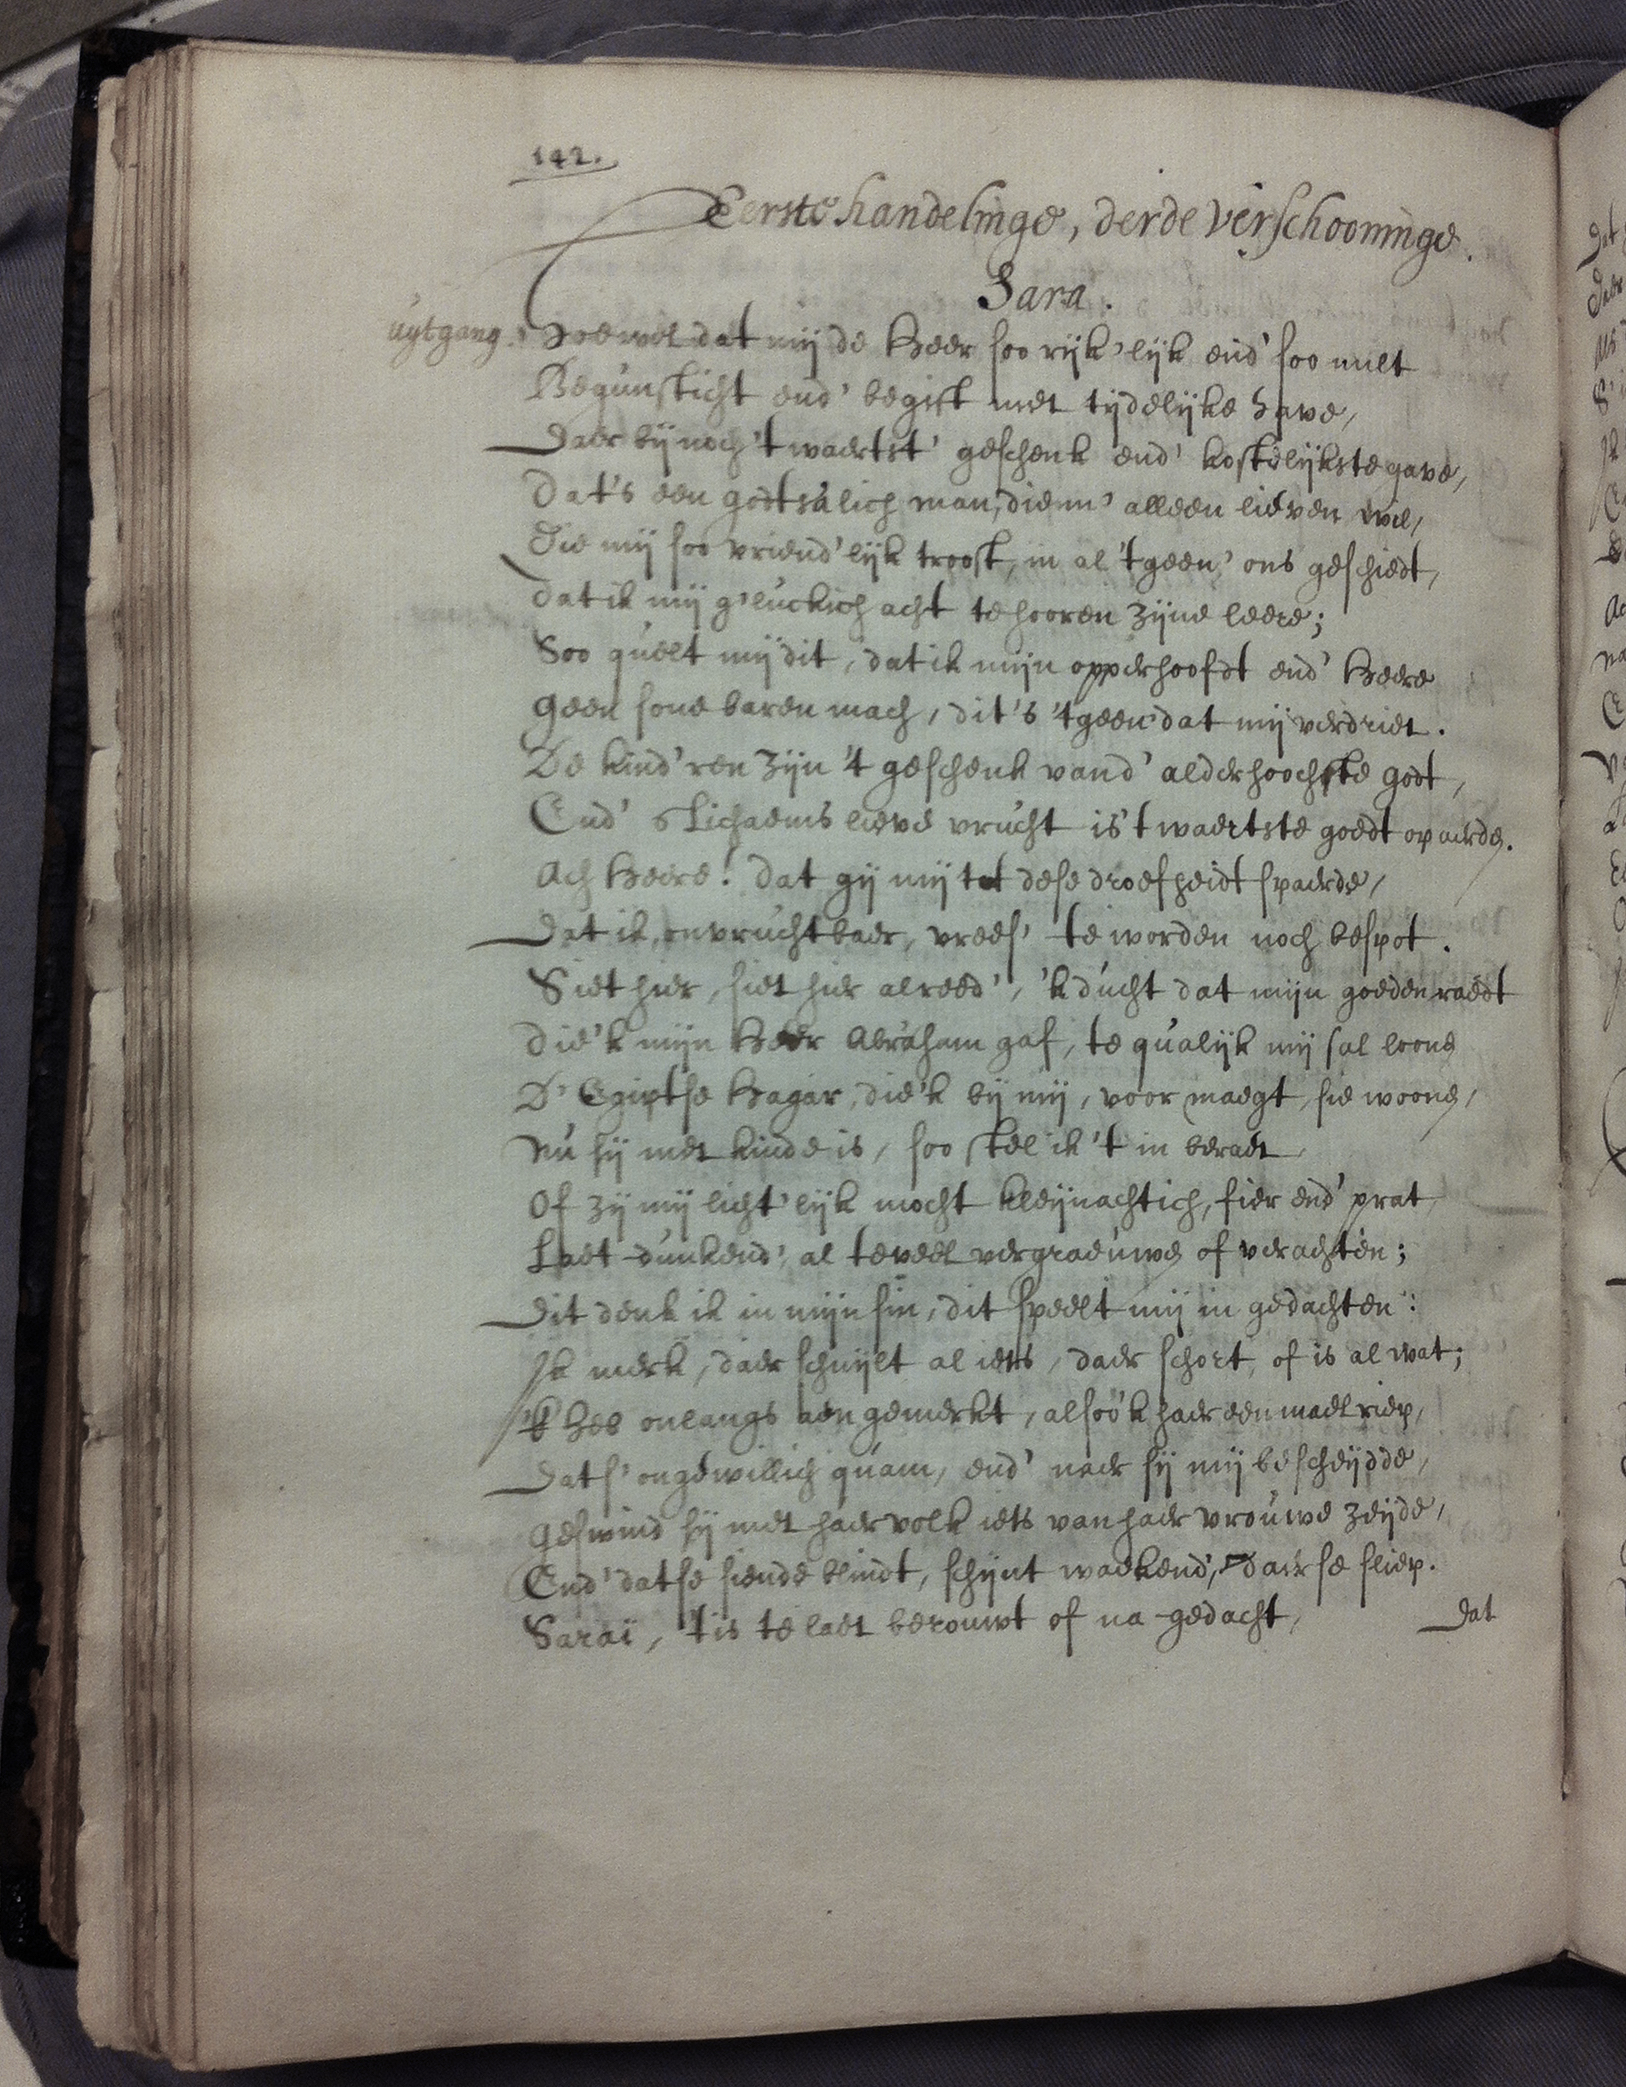 142.
Eerste handelinge, derde verschooninge.
Sara.
uytgang. Hoewel dat mij de Heer soo rijk'lijk end' soo milt
Begunsticht end' begift met tijdelijke have,
Daer bij noch 't waertst' geschenk end' kostelijkste gave,
Dat's een godtsalich man, diem' alleen lieven wil,
Die mij soo vriend'lijk troost, in al 't geen' ons geschiedt,
Dat ik mij g'luckich acht te hooren zijne leere;
Soo quelt mij dit, dat ik mijn opperhoofdt end' Heere
Geen sone baren mach, dit's 't geen dat mij verdriet.
De kind'ren zijn 't geschenk vand' alderhoochste godt,
End' s Lichaems lieve vrucht is 't waertste goedt op aerde.
Ach Heere! dat gij mij tot dese droefheidt spaerde,
Dat ik, onvruchtbaer, vrees' te worden noch bespot.
Siet hier, siet hier alreed', 'k ducht dat mijn goeden raedt
Die'k mijn Heer Abraham gaf, te qualijk mij sal loone
D' Egiptse Hagar, die'k bij mij, voor maegt, sie woone,
Nu sij met kinde is, soo stel ik 't in beraet,
Of zij mij licht'lijk mocht kleijnachtich, fier end' prat,
Laet-dunkend' al teveel vergraeuwe of verachten;
Dit denk ik in mijn sin, dit speelt mij in gedachten:
Ik merk, daer schuijlt al iets, daer schort, of is al wat;
'k heb onlangs aengemerkt, alsoo'k haer eenmael riep,
Dats' ongewillich quam, end' naer sij mij bescheijdde,
Geswind sij met haer volk iets van haer vrouwe zeijde,
End' datse siende blindt, schijnt waekend', daer se sliep.
Saraï, 't is te laet berouwt of na-gedacht,
Dat